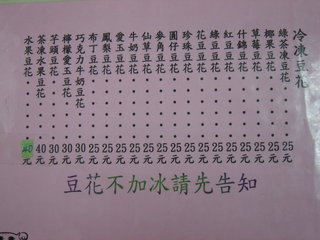 冷凍豆花
綠茶凍豆花‧‧‧25元
椰果豆花‧‧‧‧25元
草莓豆花‧‧‧‧25元
什錦豆花‧‧‧‧25元
紅豆豆花‧‧‧‧25元
綠豆豆花‧‧‧‧25元
花豆豆花‧‧‧‧25元
珍珠豆花‧‧‧‧25元
圓仔豆花‧‧‧‧25元
麥角豆花‧‧‧‧25元
仙草豆花‧‧‧‧25元
牛奶豆花‧‧‧‧25元
愛玉豆花‧‧‧‧25元
鳳梨豆花‧‧‧‧25元
布丁豆花‧‧‧‧25元
巧克力牛奶豆花‧‧30元
檸檬愛玉豆花‧‧‧30元
芋頭豆花‧‧‧‧30元
茶凍水果豆花‧‧‧40元
水果豆花‧‧‧‧40元
豆花不加冰請先告知